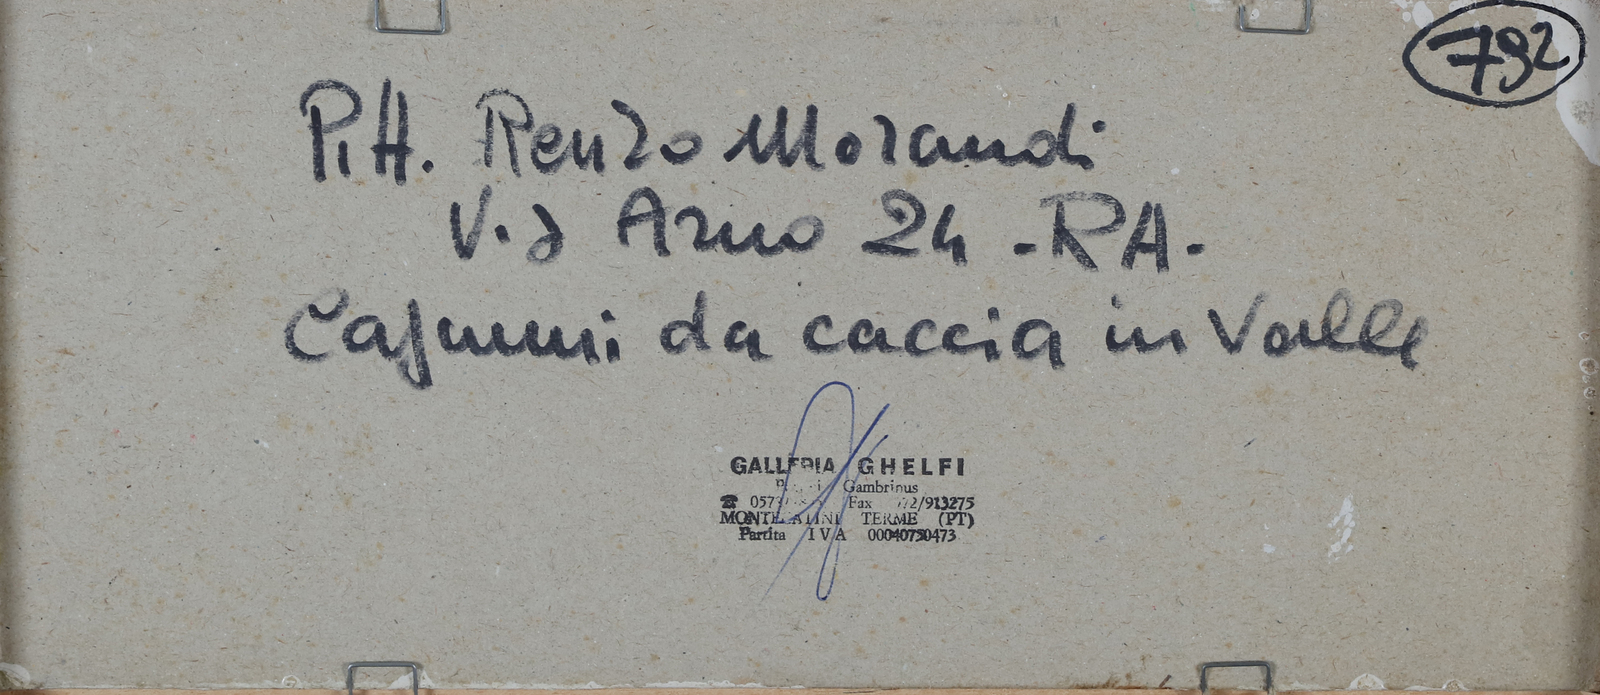 792
Pitt. Renzo Morandi
V. d Arno 24 - RA -
Capanni da caccia in Valle
GALLERIA GHELFI
Gambrinus
Fax /913275
MONTECATINI TERME (PT)
Partita IVA 00040750473